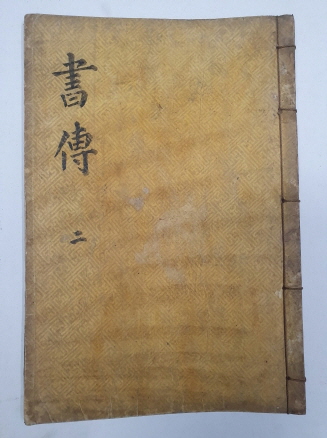 書傳
二